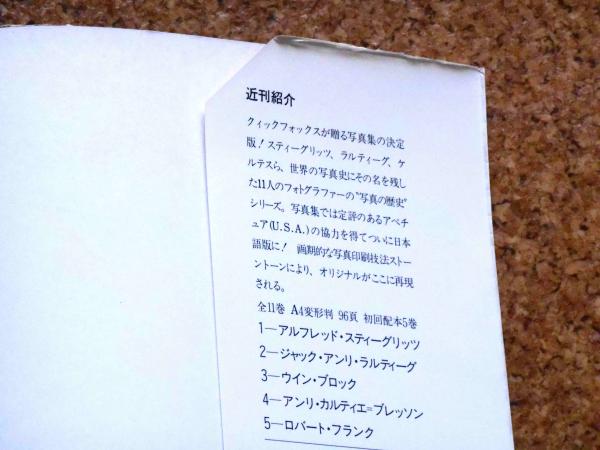 近刊紹介
クィックフォックスが贈る写真集の決定
版！スティーグリッツ、ラルティーグ、ケ
ルテスら、世界の写真史にその名を残し
た11人のフォトグラファーの“写真の歴史”
シリーズ。写真集では定評のあるアペチ
ュア(U.S.A.)の協力を得てついに日本
語版に！ 画期的な写真印刷技法ストー
ントーンにより、オリジナルがここに再現
される。
全11巻 A4変形判 96頁 初回配本5巻
1─アルフレッド・スティーグリッツ
2─ジャック・アンリ・ラルティーグ
3─ウイン・ブロック
4─アンリ・カルティエ=ブレッソン
5─ロバート・フランク